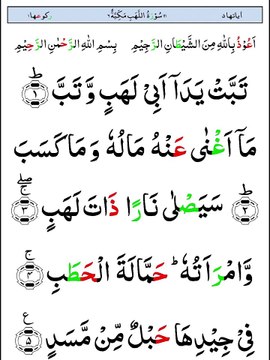 اٰیاتها ۵ سُوْرَةُ اللَّهَبِ مَكِّيَّةٌ رکوعها ۱
اَعُوْذُ بِاللّٰهِ مِنَ الشَّيْطَانِ الرَّجِيْمِ بِسْمِ اللّٰهِ الرَّحْمٰنِ الرَّحِيْمِ
تَبَّتْ يَدَآ اَبِىْ لَهَبٍ وَّ تَبَّ ؕ﴿۱﴾
مَاۤ اَغْنٰى عَنْهُ مَالُهٗ وَ مَا كَسَبَ
ؕ﴿۲﴾ سَيَصْلٰى نَارًا ذَاتَ لَهَبٍ ۚۖ﴿۳﴾
وَّ امْرَاَتُهٗ ؕ حَمَّالَةَ الْحَطَبِ ۚ﴿۴﴾
فِىْ جِيْدِهَا حَبْلٌ مِّنْ مَّسَدٍ ﴿۵﴾ ع